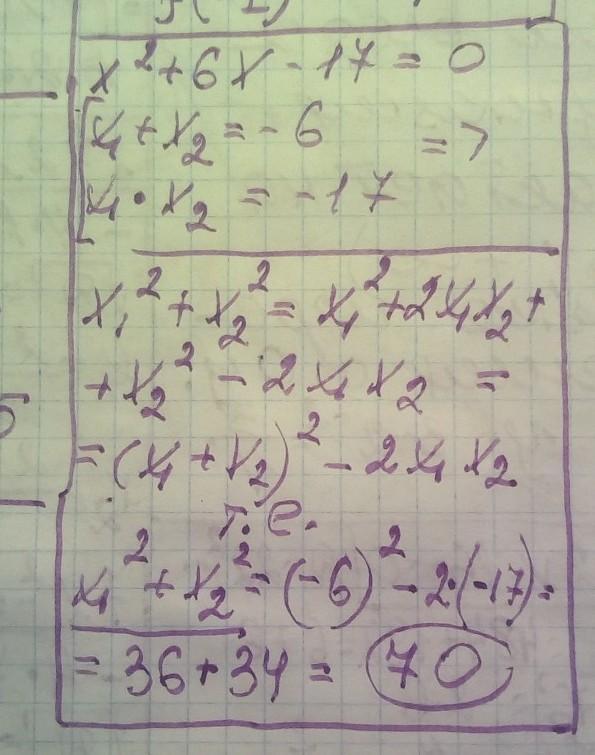 x² + 6x - 17 = 0
x₁ + x₂ = - 6
=>
x₁ • x₂ = - 17
x₁² + x₂² = x₁² + 2x₁x₂ +
+ x₂² - 2x₁x₂ =
= (x₁ + x₂)² - 2x₁x₂
т. е.
x₁² + x₂² = (-6)² - 2·(-17) =
= 36 + 34 = 70